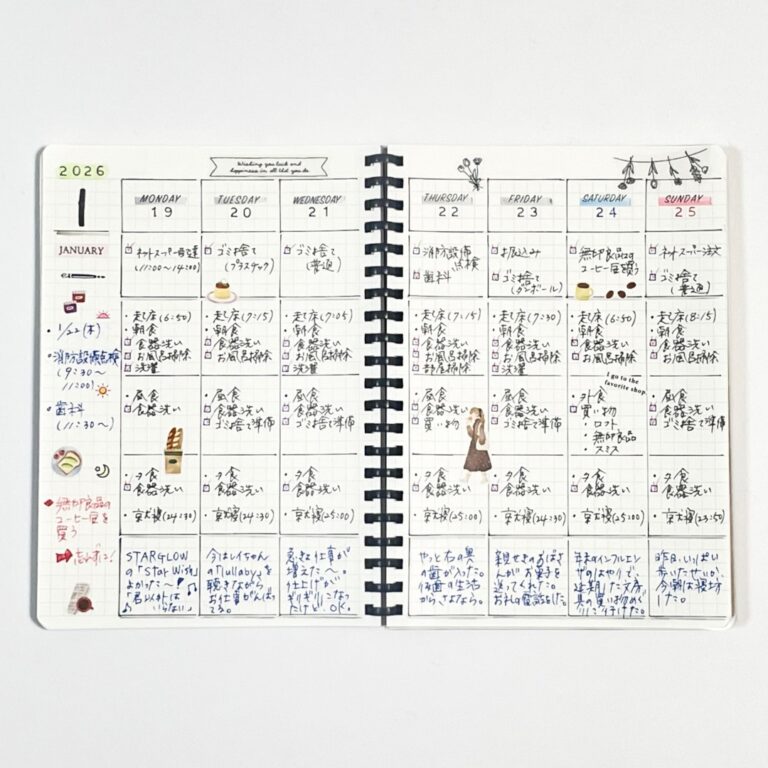 2026
1
JANUARY
・1/22(木)
・消防設備点検
(9:30〜
11:00)
・歯科
(11:30〜)
無印良品の
コーヒー豆を
買う
忘れずに!
Wishing you luck and
happiness in all that you do.
MONDAY
19
ネットスーパー
(11:00〜14:00)
・起床(6:50)
・朝食
食器洗い
お風呂掃除
洗濯
・昼食
食器洗い
・夕食
食器洗い
・就寝(24:30)
STARGLOW
の「Star Wish」
よかった〜!
「君以外は
いらない」
TUESDAY
20
ゴミ捨て
(プラスチック)
・起床(7:15)
・朝食
食器洗い
お風呂掃除
・昼食
食器洗い
ゴミ捨て準備
・夕食
食器洗い
・就寝(24:30)
今はレイちゃん
の「Lullaby」を
聴きながら
お仕事がんばっ
てる。
WEDNESDAY
21
ゴミ捨て
(普通)
・起床(7:05)
・朝食
食器洗い
お風呂掃除
洗濯
・昼食
食器洗い
・夕食
食器洗い
・就寝(25:00)
急きょ仕事が
増えた〜。
仕上げが
ギリギリになっ
たけど、OK。
THURSDAY
22
消防設備
点検
歯科
・起床(7:15)
・朝食
食器洗い
お風呂掃除
部屋掃除
・昼食
食器洗い
買い物
・夕食
食器洗い
・就寝(25:00)
やっと右の奥
の歯が入った。
仮歯の生活
からさよなら。
FRIDAY
23
お振込み
ゴミ捨て
(ダンボール)
・起床(7:30)
・朝食
食器洗い
お風呂掃除
・昼食
食器洗い
ゴミ捨て準備
・夕食
食器洗い
・就寝(24:30)
親せきのおばさ
んがお菓子を
送ってくれた。
お礼の電話をした。
SATURDAY
24
無印良品の
コーヒー豆を買う
・起床(6:50)
・朝食
食器洗い
お風呂掃除
I go to the
favorite shop
・外食
買い物
・ロフト
・無印良品
・スミス
・夕食
食器洗い
・就寝(25:00)
年末のインフルエン
ザのはやりで、
延期した文房
具の買い物めぐ
りに行けた。
SUNDAY
25
ネットスーパー注文
ゴミ捨て
(普通)
・起床(8:15)
・朝食
食器洗い
お風呂掃除
洗濯
・昼食
食器洗い
ゴミ捨て準備
・夕食
食器洗い
・就寝(23:50)
昨日、いっぱい
歩いたせいか、
今朝は寝坊
した。